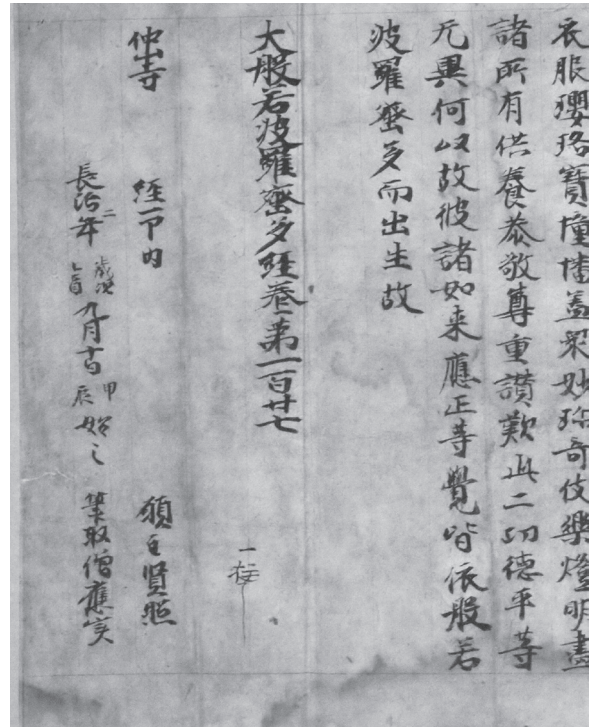 衣服瓔珞寶幢幡蓋眾妙珎奇伎樂燈明盡
諸所有供養恭敬尊重讃歎此二功德平等
无異何以故彼諸如来應正等覺皆依般若
波羅蜜多而出生故
大般若波羅蜜多経卷第一百廿七
一挍
仲寺 経一部内 願主賢照
長治二年歳次乙酉九月十日甲辰始之 筆取僧應実